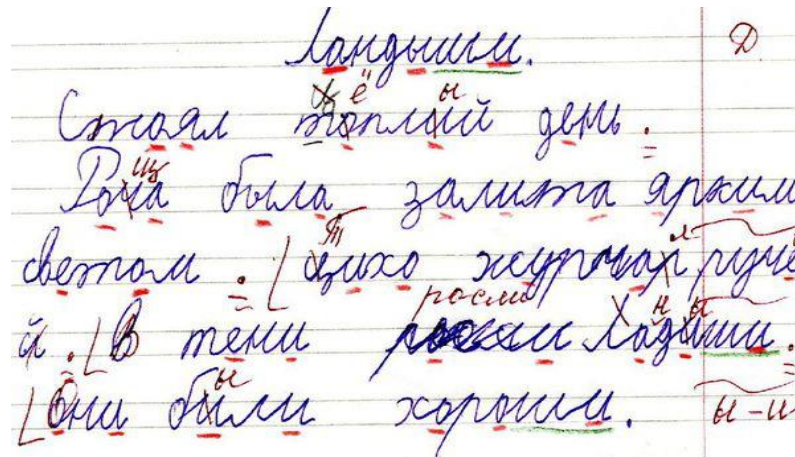 Ландыши. Д
Стоял тёплый день.
Роща была залита ярким
светом. Тихо журчал ручe
й. В тени росли Ландыши.
Они были хороши. ы-и